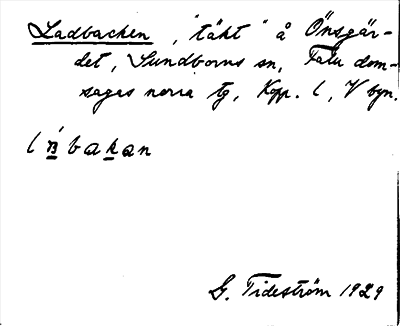 Ladbacken, "täkt" å Önsgär-
det, Sundborns sn, Falu dom-
sagas norra tg, Kpp. l, V byn.
G. Tideström 1929